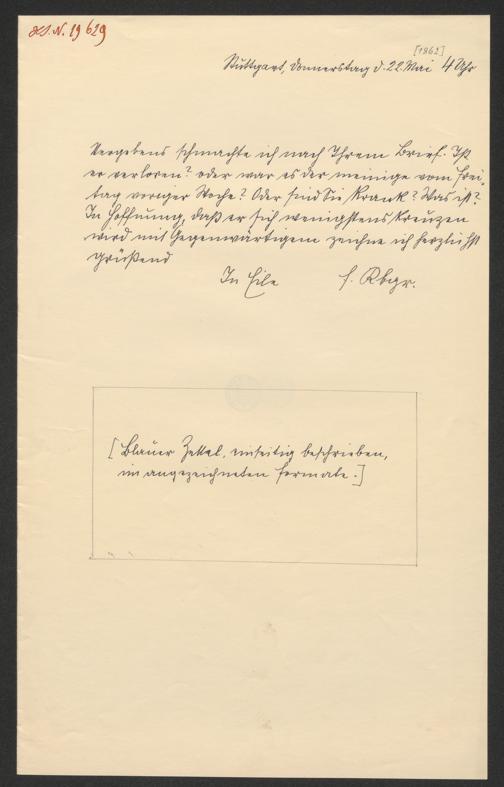 H.I.N. 19629
[1862]
Stuttgart, Donnerstag d. 22. Mai 4 Uhr
Vergebens schmachte ich nach Ihrem Brief. Ist
er verloren? oder war es der meinige vom Frei-
tag voriger Woche? Oder sind Sie krank? Was ist?
In Hoffnung, daß er sich wenigstens kreuzen
wird mit Gegenwärtigem zeichne ich herzlichst
grüßend
In Eile f. Rbgr.
[Blauer Zettel, einseitig beschrieben,
im angezeichneten Formate.]